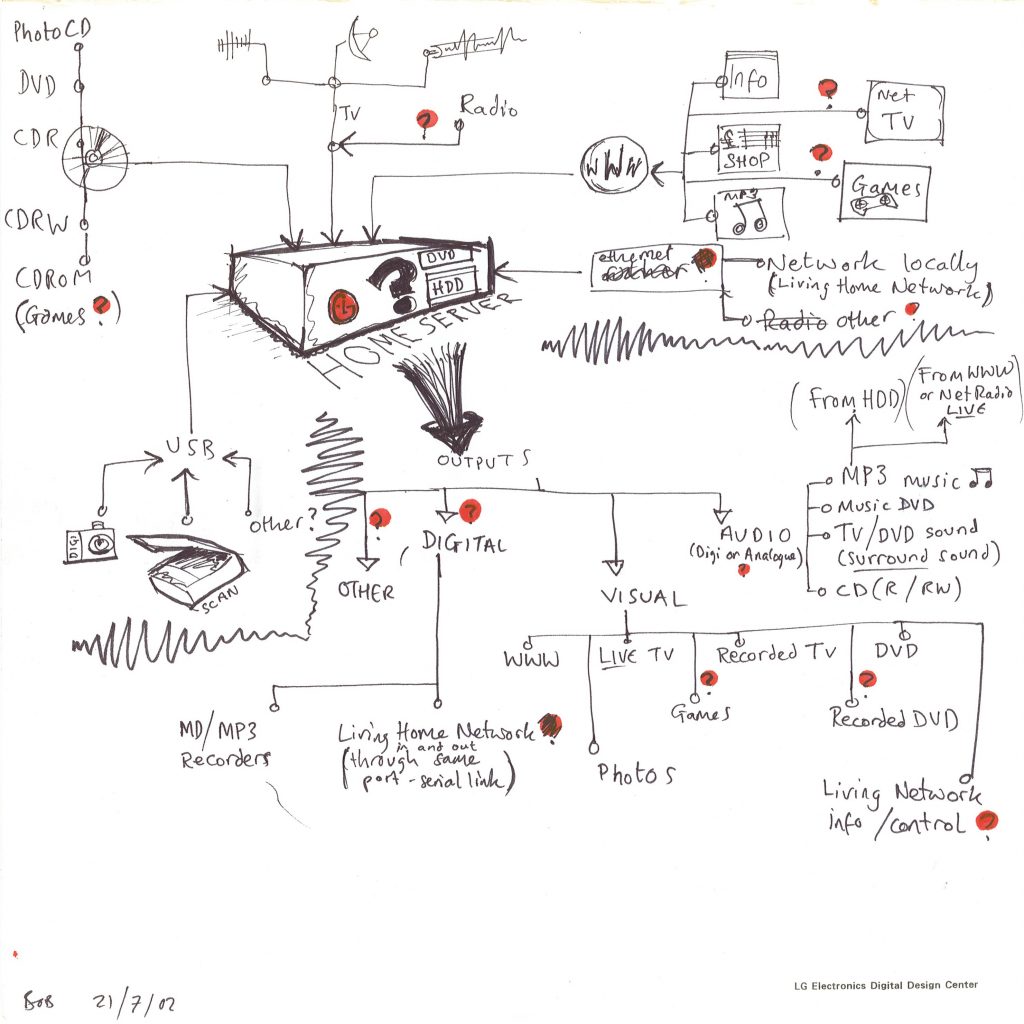 PhotoCD
DVD
CDR
CDRW
CDROM
(Games ?)
TV
?
Radio
WWW
Info
?
Net
TV
£
SHOP
?
Games
MP3
ethernet
Network locally
(Living Home Network)
Radio other ?
DVD
HDD
?
LG
HOME SERVER
USB
DIGI
SCAN
other?
OUTPUTS
?
OTHER
?
DIGITAL
VISUAL
AUDIO
(Digi or Analogue)
?
(From HDD)
(From WWW
or Net Radio
LIVE)
MP3 music
Music DVD
TV/DVD sound
(surround sound)
CD (R / RW)
MD/MP3
Recorders
Living Home Network ?
in and out
(through same
port - serial link)
WWW
LIVE TV
Recorded TV
DVD
?
Games
?
Recorded DVD
Photos
Living Network
info /control ?
Bob 21/7/02
LG Electronics Digital Design Center